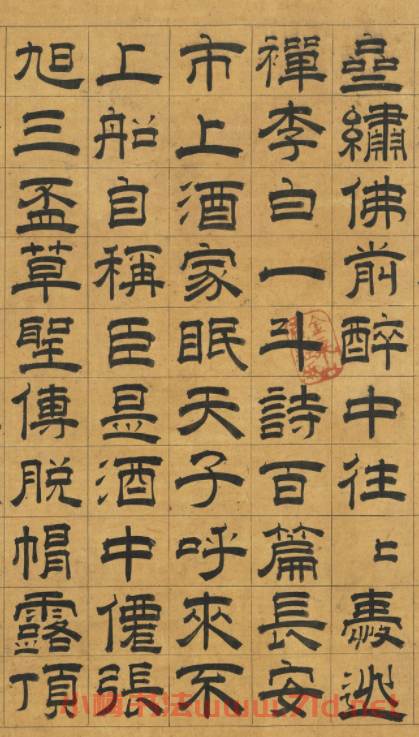 齋繡佛前醉中往〻愛逃
禪李白一斗詩百篇長安
市上酒家眠天子呼來不
上船自稱臣是酒中僊張
旭三盃草聖傳脫帽露頂
书法www.7ld.net